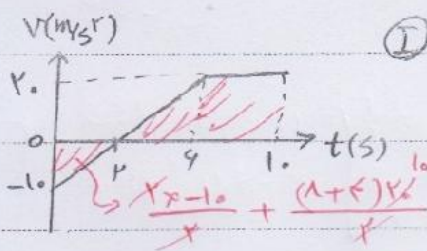 V(m/s²)
I
۲۰
۰
-۱۰
۲ ۶ ۱۰ t(s)
۲×-۱۰/۲ + (۸+۴)۲۰/۲ ۱۰